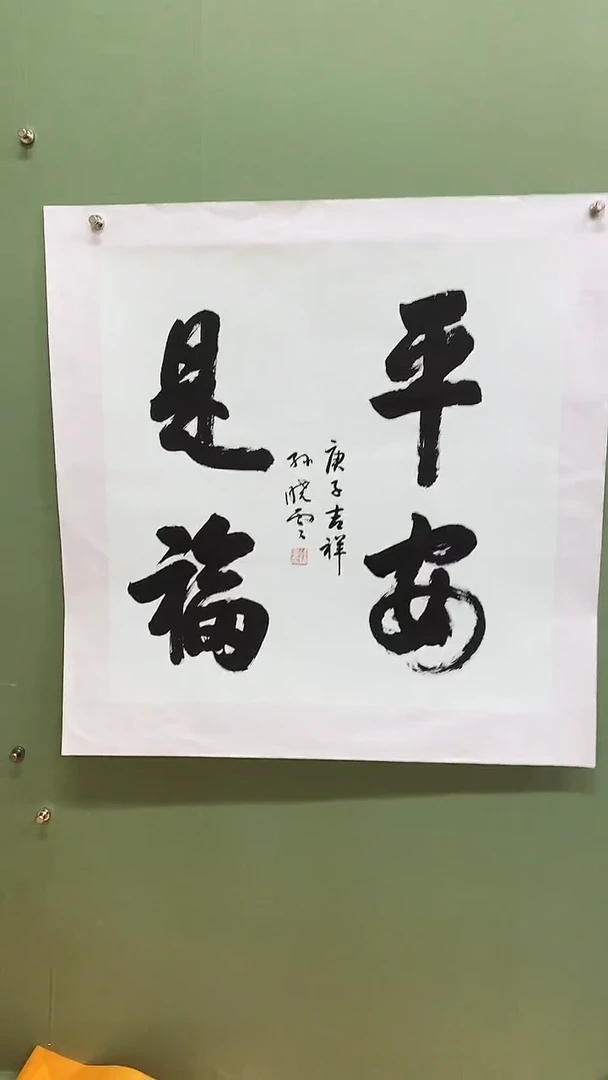 平安
是福
庚子吉祥
孙晓云